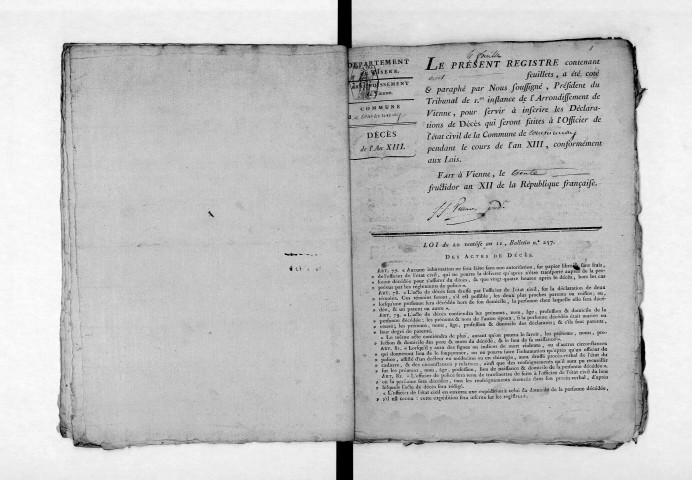 1
DÉPARTEMENT
DE L'ISÈRE.
ARRONDISSEMENT
de Vienne.
COMMUNE
DÉCÈS
de l'An XIII.
LE PRÉSENT REGISTRE contenant
feuillets, a été coté
& paraphé par Nous soussigné, Président du
Tribunal de 1.re instance de l'Arrondissement de
Vienne, pour servir à inscrire les Déclara-
tions de Décès qui seront faites à l'Officier de
l'état civil de la Commune de
pendant le cours de l'an XIII, conformément
aux Lois.
FAIT à Vienne, le trente
fructidor an XII de la République française.
LOI du 20 ventôse an 11, Bulletin n.° 257.
DES ACTES DE DÉCÈS.
ART. 77. « Aucune inhumation ne sera faite sans une autorisation, sur papier libre & sans frais,
» de l'officier de l'état civil, qui ne pourra la délivrer qu'après s'être transporté auprès de la per-
» sonne décédée pour s'assurer du décès, & que vingt-quatre heures après le décès, hors les cas
» prévus par les règlemens de police ».
ART. 78. « L'acte de décès sera dressé par l'officier de l'état civil, sur la déclaration de deux
» témoins. Ces témoins seront, s'il est possible, les deux plus proches parens ou voisins; ou,
» lorsqu'une personne sera décédée hors de son domicile, la personne chez laquelle elle sera décé-
» dée, & un parent ou autre ».
ART. 79. « L'acte de décès contiendra les prénoms, nom, âge, profession & domicile de la
» personne décédée; les prénoms & nom de l'autre époux, si la personne décédée était mariée ou
» veuve; les prénoms, noms, âge, profession & domicile des déclarans; & s'ils sont parens,
» leur degré de parenté.
» Le même acte contiendra de plus, autant qu'on pourra le savoir, les prénoms, noms, pro-
» fession & domicile des père & mère du décédé, & le lieu de sa naissance ».
ART. 81. « Lorsqu'il y aura des signes ou indices de mort violente, ou d'autres circonstances
» qui donneront lieu de le soupçonner, on ne pourra faire l'inhumation qu'après qu'un officier de
» police, assisté d'un docteur en médecine ou en chirurgie, aura dressé procès-verbal de l'état du
» cadavre, & des circonstances y relatives, ainsi que des renseignemens qu'il aura pu recueillir
» sur les prénoms, nom, âge, profession, lieu de naissance & domicile de la personne décédée ».
ART. 82. « L'officier de police sera tenu de transmettre de suite à l'officier de l'état civil du lieu
» où la personne sera décédée, tous les renseignemens énoncés dans son procès-verbal, d'après
» lesquels l'acte de décès sera rédigé.
» L'officier de l'état civil en enverra une expédition à celui du domicile de la personne décédée,
» s'il est connu : cette expédition sera inscrite sur les registres ».